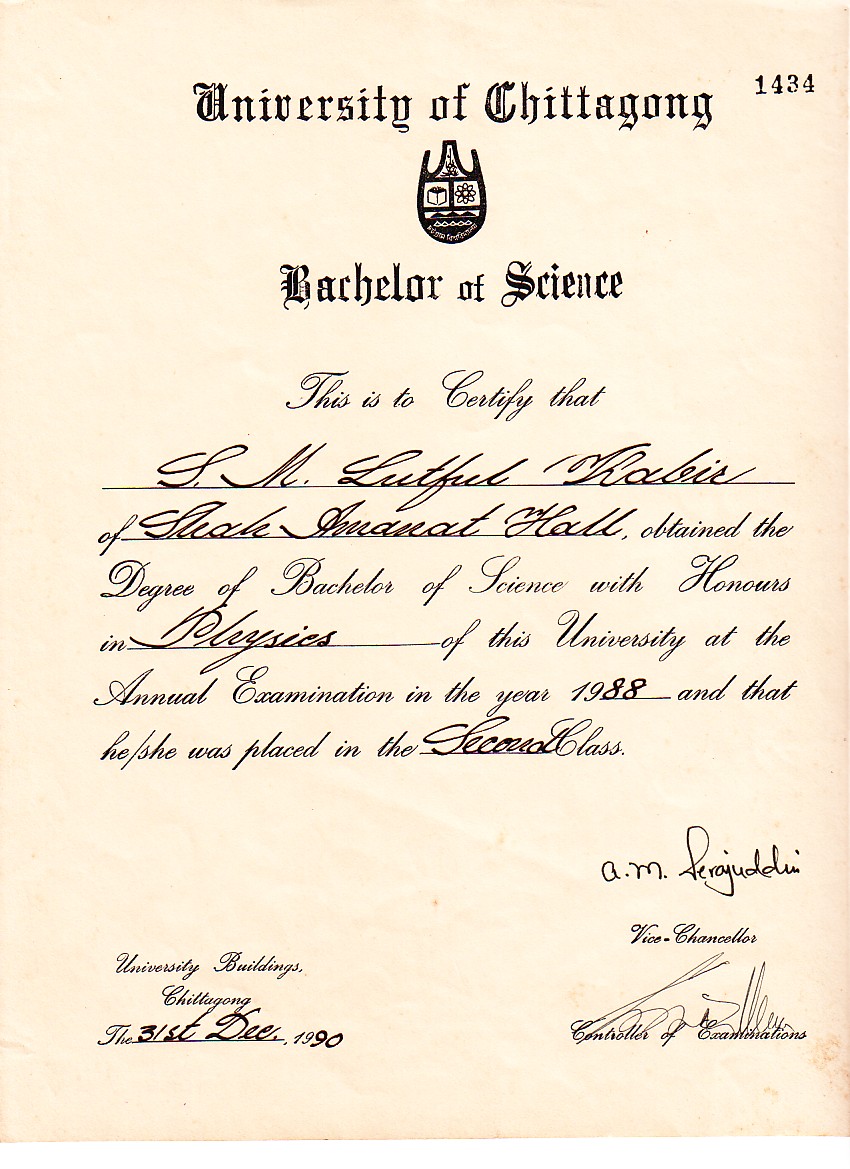 1434
University of Chittagong
Bachelor of Science
This is to Certify that
S. M. Lutful Kabir
of Shah Amanat Hall, obtained the
Degree of Bachelor of Science with Honours
in Physics of this University at the
Annual Examination in the year 1988 and that
he/she was placed in the Second Class.
A.M. Serajuddin
Vice-Chancellor
University Buildings,
Chittagong
The 31st Dec. , 1990
Controller of Examinations